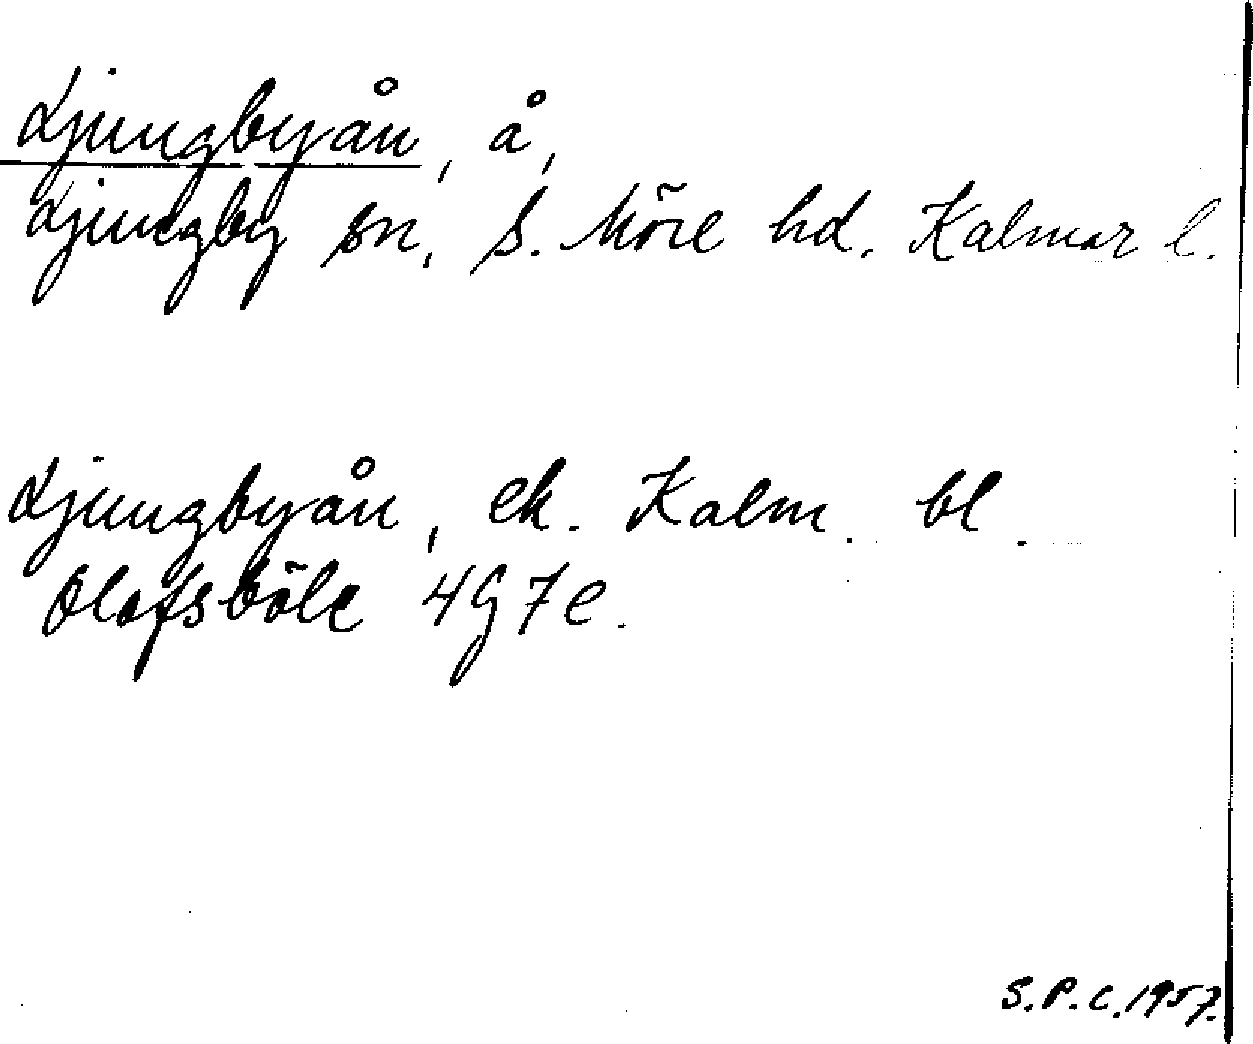 Ljungbyån, å,
Ljungby sn, S. Möre hd. Kalmar l.
Ljungbyån, ek. Kalm. bl.
Olofsböle 4G7e.
S.P.C. 1957.